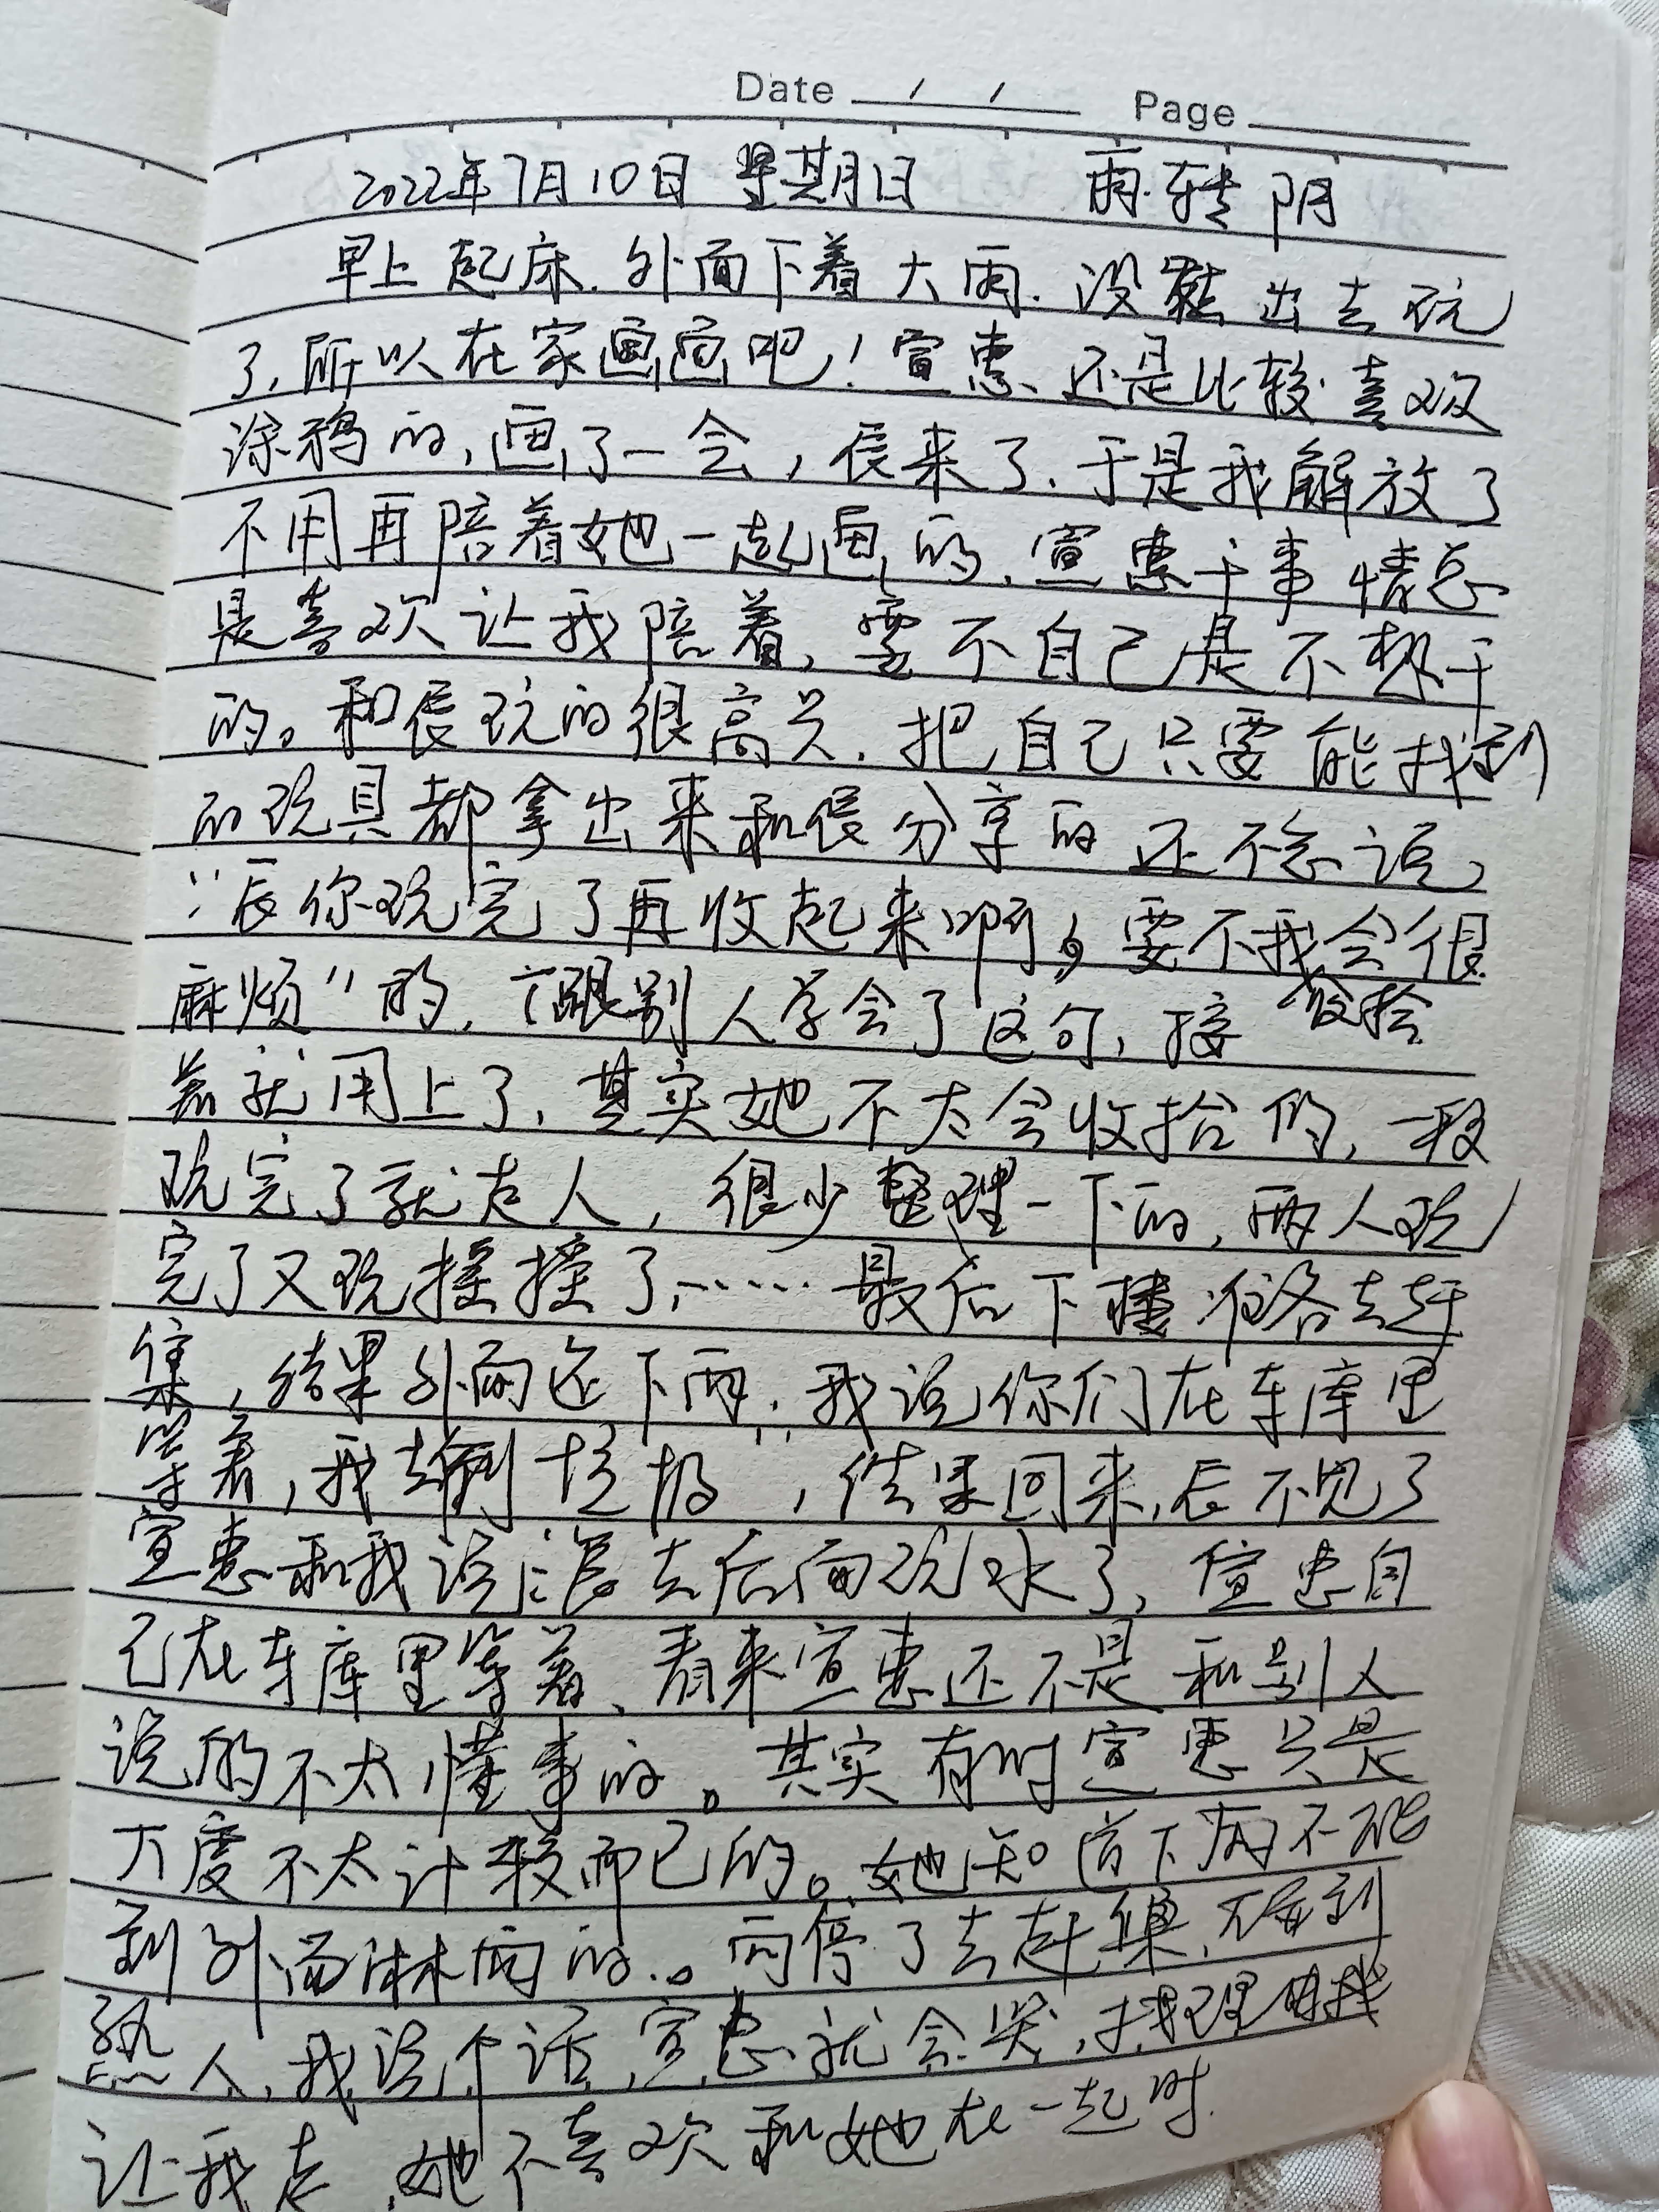 Date / / Page
2022年7月10日 星期日 雨转阴
早上起床.外面下着大雨.没能出去玩
了,所以在家画画吧!宣惠还是比较喜欢
涂鸦的,画了一会,辰来了.于是我解放了
不用再陪着她一起画的.宣惠干事情总
是喜欢让我陪着,要不自己是不想干
的。和辰玩的很高兴.把自己只要能找到
的玩具都拿出来和辰分享的还不忘说,
“辰你玩完了再收起来啊,要不我会很
麻烦”的,跟别人学会了这句,接 收拾
着就用上了,其实她不太会收拾的,一般
玩完了就走人,很少整理一下的,两人玩
完了又玩摇摇了……最后下楼准备去赶
集,结果外面还下雨.我说你们在车库里
等着,我去倒垃圾,结果回来,辰不见了
宣惠和我说:辰去后面玩水了,宣惠自
己在车库里等着、看来宣惠还不是和别人
说的不太懂事的。其实有时宣惠只是
大度不太计较而已的。她知道下雨不能
到外面淋雨的.。雨停了去赶集,看到
熟人,我说个话,宣惠就会哭,找理由
让我走,她不喜欢和她在一起时.